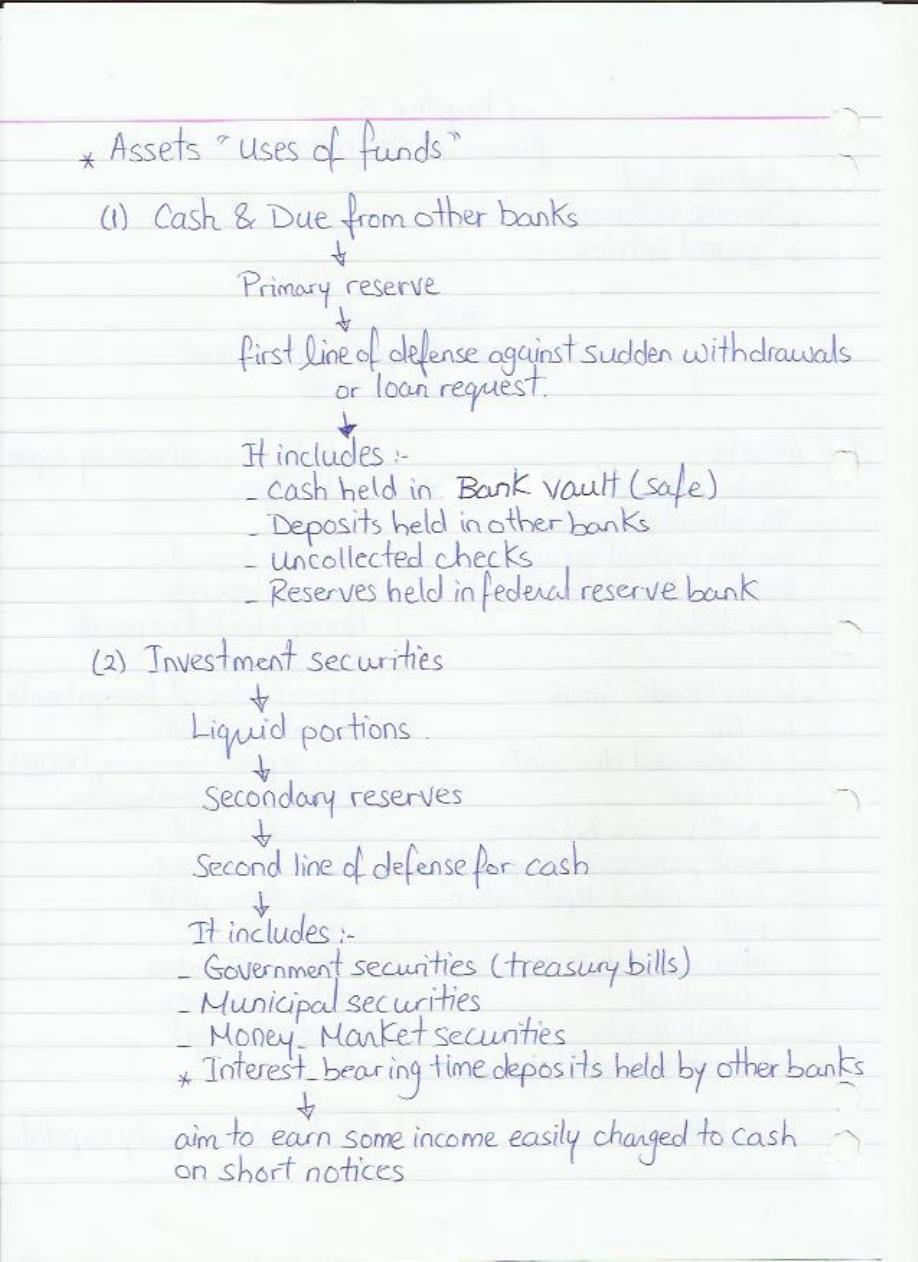 * Assets "Uses of funds"
(1) Cash & Due from other banks
↓
Primary reserve
↓
first line of defense against sudden withdrawals
or loan request.
↓
It includes :-
- Cash held in Bank vault (safe)
- Deposits held in other banks
- uncollected checks
- Reserves held in federal reserve bank
(2) Investment securities
↓
Liquid portions.
↓
Secondary reserves
↓
Second line of defense for cash
↓
It includes :-
- Government securities (treasury bills)
- Municipal securities
- Money-Market securities
* Interest-bearing time deposits held by other banks
↓
aim to earn some income easily changed to cash
on short notices